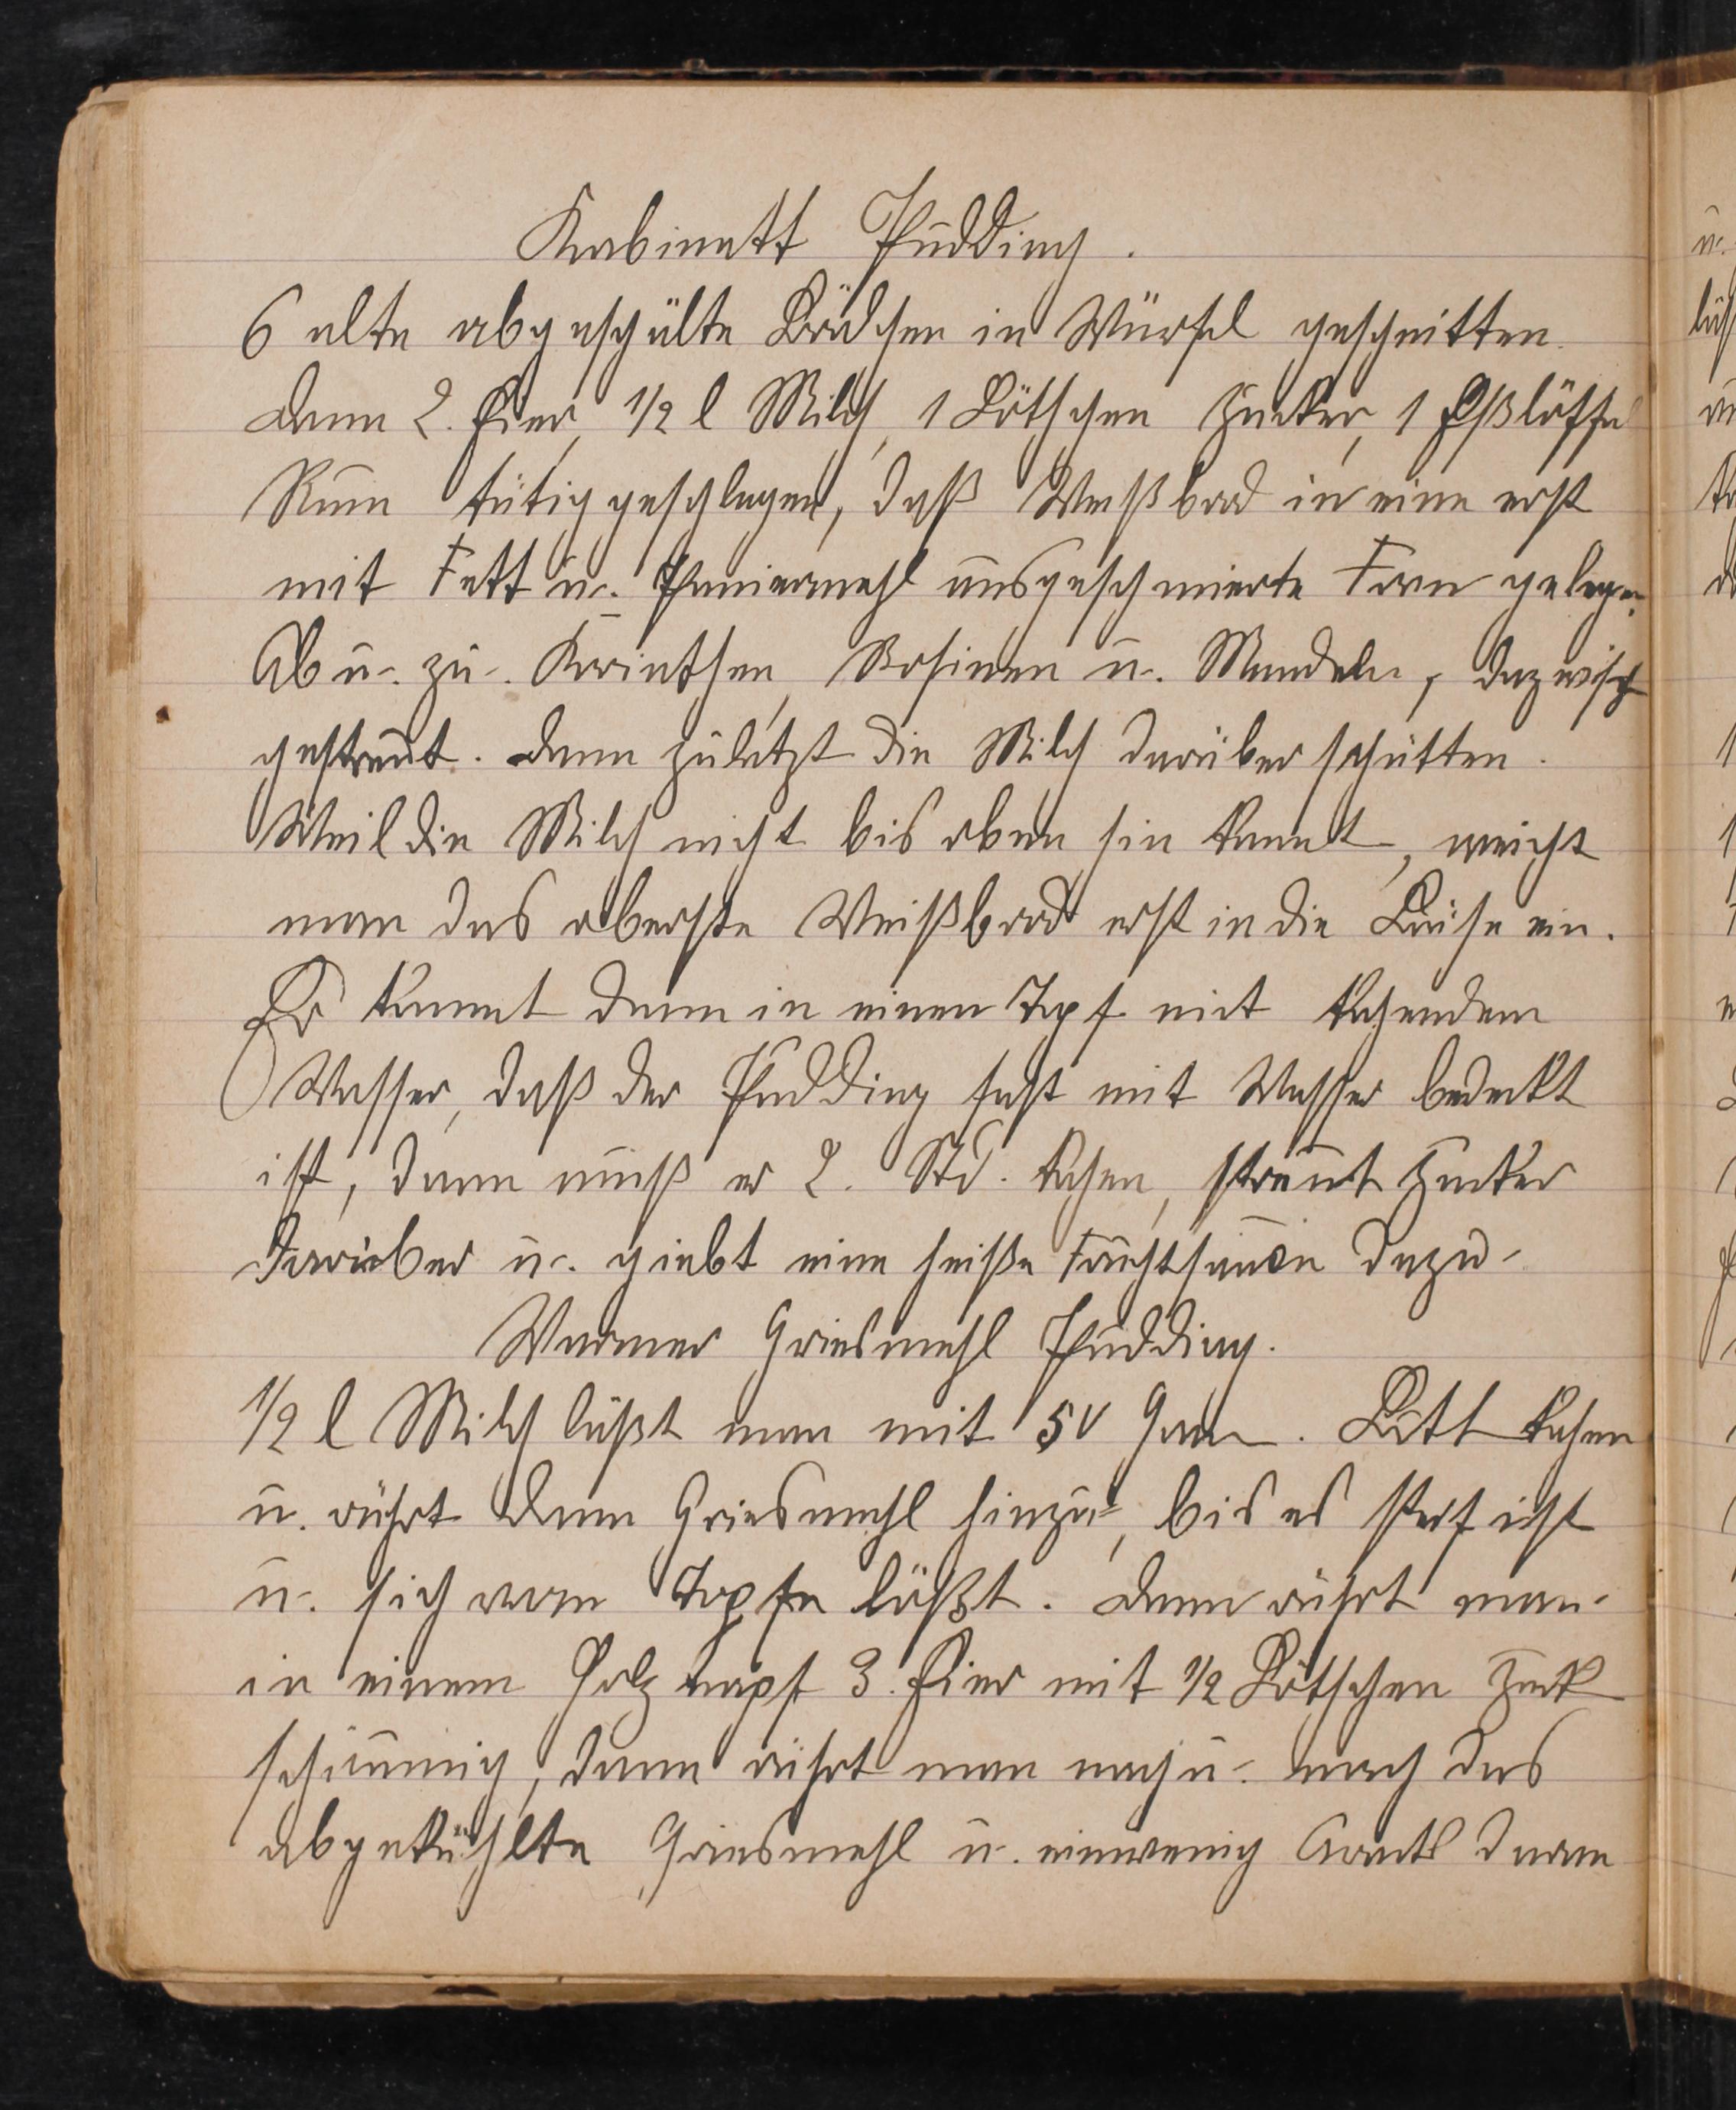 Kabinett Pudding.
6 alte abgeschälte Brödchen in Würfel geschnitten.
dann 2. Eier, 1/2 l Milch, 1 Kötchen Zucker, 1 Eßlöffel
Rum tütig geschlagen, daß Weißbrod in eine erst
mit Fett u. Paniermehl ausgeschmierte Form gelegen.
Ab u. zu. Korinthen, Rosinen u. Mandeln, dazwisch
gestreut. dann zuletzt die Milch darüber schütten.
Weil die Milch nicht bis oben hin kommt, weicht
man das oberste Weißbrod erst in die Brühe ein.
Er kommt dann in einen Topf mit kochendem
Wasser, daß der Pudding fast mit Wasser bedeckt
ist, dann muß er 2. Std. kochen, streut Zucker
darüber u. giebt eine heiße Fruchtsauce dazu.
Warmer Griesmehl Pudding.
1/2 l Milch läßt man mit 50 Gram. Butt kochen
u. rührt dann Griesmehl hinzu, bis es steif ist
u. sich vom Topfe lößt. dann rührt man
in einem Holznapf 3. Eier mit 1/2 Kötchen Zuck
schaumig, dann rührt man nach u. nach das
abgekühlte Griesmehl u. einwenig Arrak daran